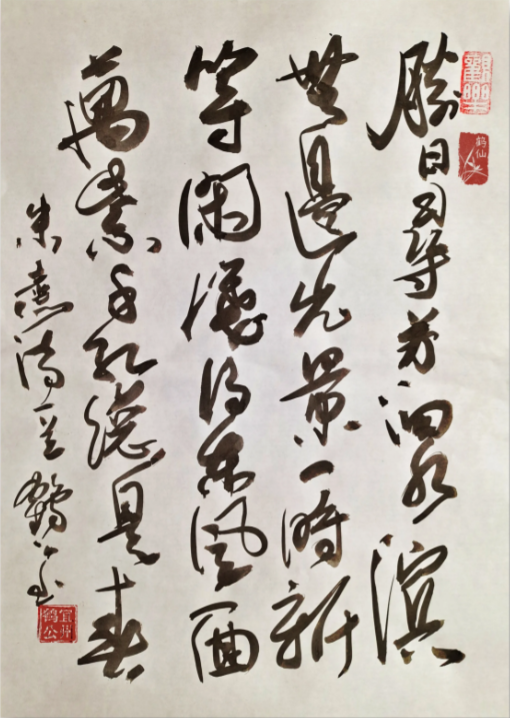 勝日尋芳泗水濱
無邊光景一時新
等閑識得東風面
萬紫千紅總是春
朱熹詩一首 鶴公
鹤仙
宜州鹤公